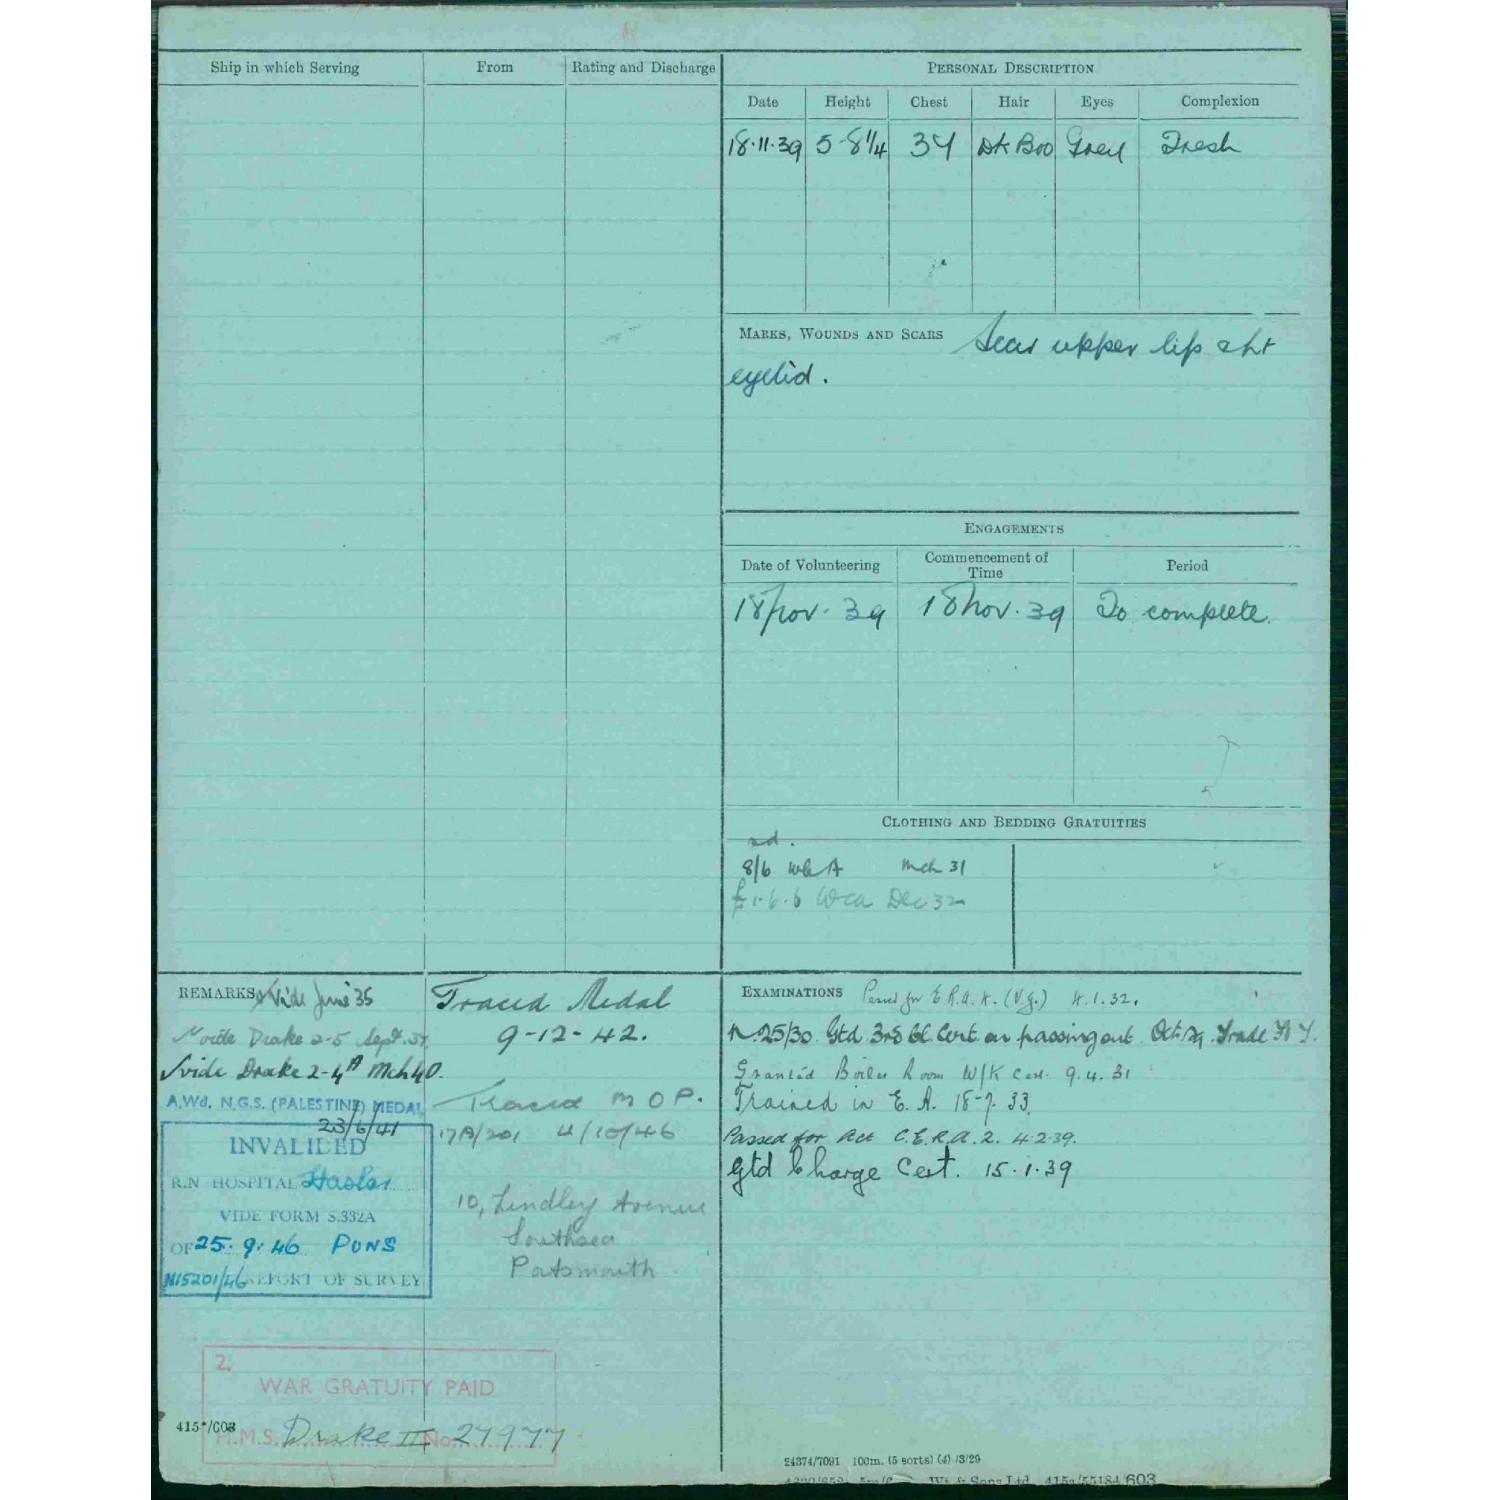 Ship in which Serving
From
Rating and Discharge
PERSONAL DESCRIPTION
Date
Height
Chest
Hair
Eyes
Complexion
18.11.39
5-8 1/4
34
Dk Bro
Grey
Fresh
MARKS, WOUNDS AND SCARS Scar upper lip & rt
eyelid.
ENGAGEMENTS
Date of Volunteering
Commencement of
Time
Period
18 Nov. 39
18 Nov. 39
To complete.
CLOTHING AND BEDDING GRATUITIES
8/6 Mch 31
£1.6.6 Dec 32
REMARKS Vide June 35
Vide Drake 2-5 Sept.
Vide Drake 2-4A Mch 40.
A.Wd. N.G.S. (PALESTINE) MEDAL
23/6/41
INVALIDED
R.N HOSPITAL Haslar
VIDE FORM S.332A
OF 25.9.46 PUNS
N15201/46 REPORT OF SURVEY
Traced Medal
9-12-42.
Traced M O P.
17A/201 4/10/46
10, Lindley Avenue
Southsea
Portsmouth
EXAMINATIONS Passed for E.R.A. 4. (V.G.) 4.1.32.
N.25/30 Gtd 3rd Cl. Cert on passing out Oct 29 Trade F & T.
Granted Boiler Room W/K Cert. 9.4.31
Trained in E.A. 18-7.33.
Passed for Act C.E.R.A.2. 4.2.39.
Gtd Charge Cert. 15.1.39
2.
WAR GRATUITY PAID
H.M.S. Drake II No. 27977
415*/603
24374/7091 100m. (5 sorts) (4) /3/29
Wt & Sons Ltd. 415a/55184/603